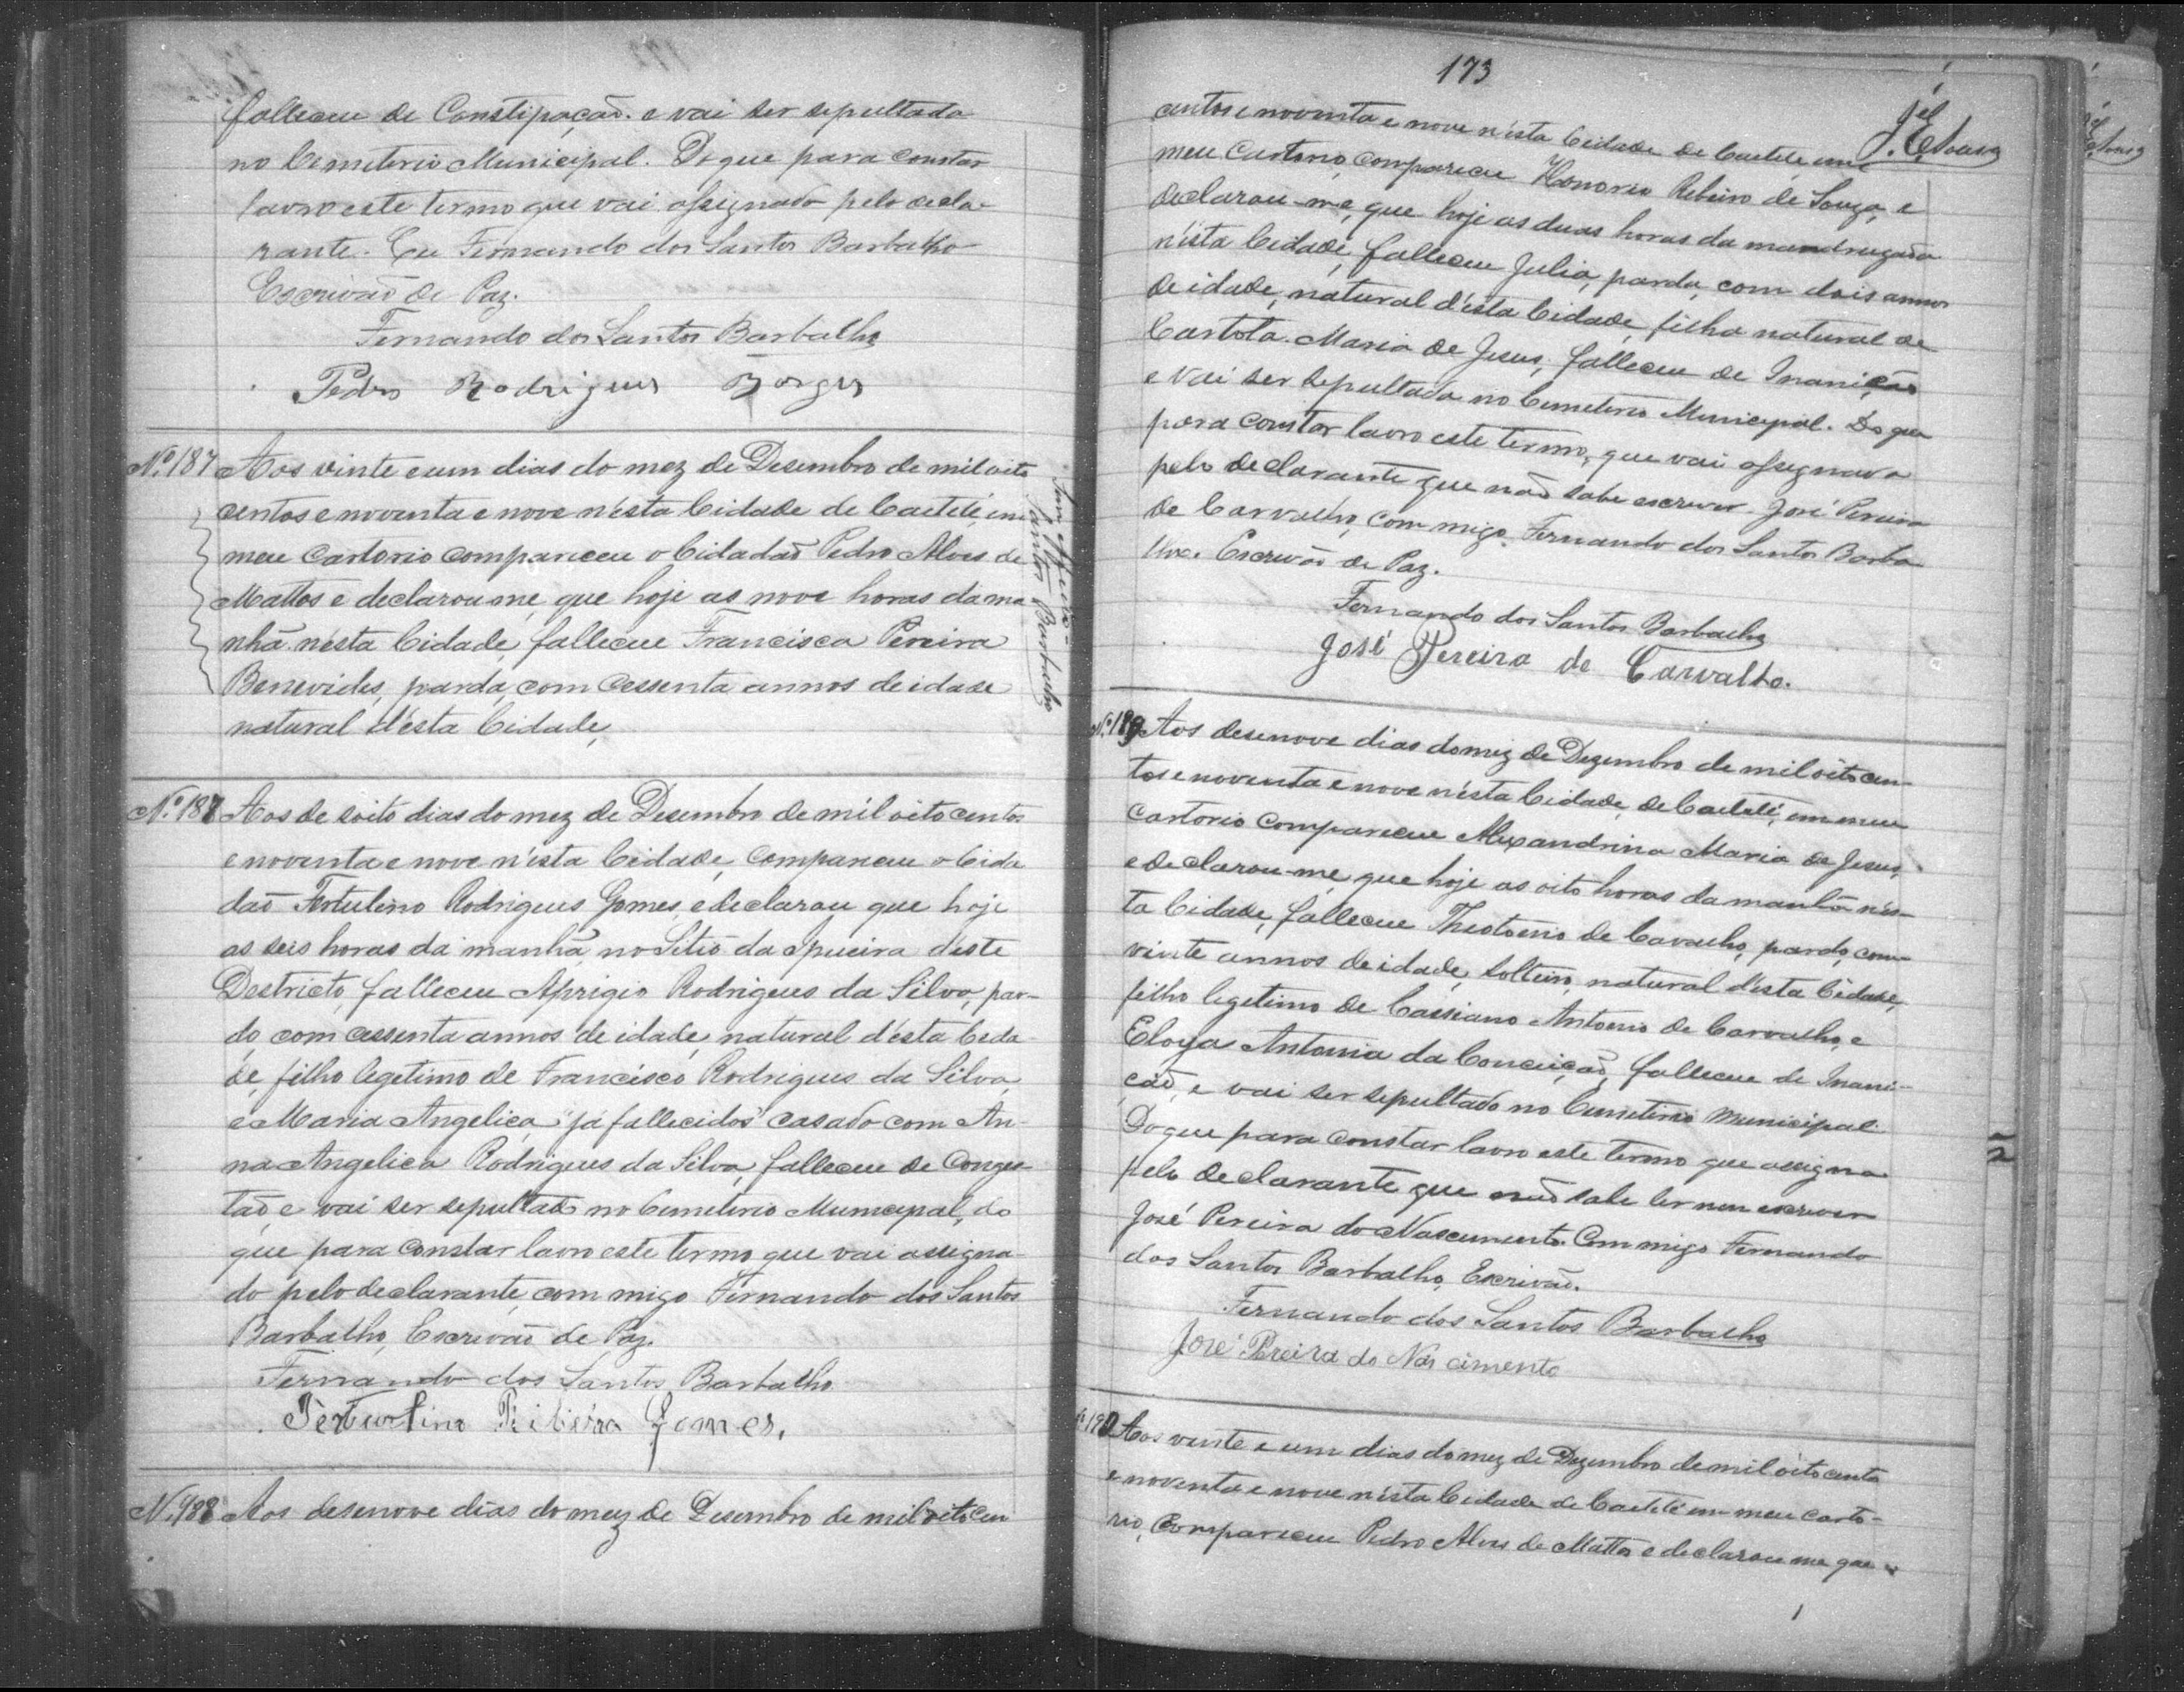 falleceu de Constipação. e vai ser sepultado
no Cemiterio Municipal. Do que para constar
lavro este termo que vai assignado pelo decla-
rante. Eu Fernando dos Santos Barbalho
Escrivão de Paz.
Fernando dos Santos Barbalho
Pedro Rodrigues Borges
Nº 187 Aos vinte e um dias do mez de Desembro de mil oito
centos e noventa e nove n'esta Cidade de Caetité, em
meu Cartorio compareceu o Cidadão Pedro Alves de
Mattos e declarou me que hoje as nove horas da ma
nhã nésta Cidade, falleceu Francisca Pereira
Benevides, parda, com cessenta annos de idade
natural d'ésta Cidade,
Sem effeito
Santos Barbalho
Nº 187 Aos de soito dias do mez de Desembro de mil oito centos
e noventa e nove n'ésta Cidade, Compareceu o Cida
dão Rodrigues Gomes, e declarou que hoje
as seis horas da manhã, no Sitio da Ipueira deste
Destricto, falleceu Aprigio Rodrigues da Silva, par-
do, com cessenta annos de idade, natural d'ésta Cida
de, filho legetimo de Francisco Rodrigues da Silva,
e Maria Angelica, já fallecidos casado com An-
na Angelica Rodrigues da Silva, falleceu de Conges-
tão, e vai ser sepultado no Cemeterio Municipal, do
que para constar lavro este termo que vai assigna-
do pelo declarante, com migo Fernando dos Santos
Barbalho, Escrivão de Paz.
Fernando dos Santos Barbalho
Ribeiro Gomes.
N. 188 Aos desenove dias do mez de Desembro de mil oito cen
173
centos e noventa e nove n'ésta Cidade de Caetité em
meu Cartorio, compareceu Honorio Ribeiro de Souza, e
declarou-me, que hoje as duas horas da mandrugada
n'ésta Cidade, falleceu Julia, parda, com dois annos
de idade, natural d'ésta Cidade, filha natural de
Maria de Jesus, falleceu de Inanição
e vai ser sepultada no Cemeterio Municipal. Do que
para constar lavro este termo, que vai assignado
pelo declarante que não sabe escrever José Pereira
de Carvalho, com migo Fernando dos Santos Barba
lho. Escrivão de Paz.
Fernando dos Santos Barbalho
José Pereira de Carvalho.
Nº 189 Aos desenove dias do mez de Dezembro de mil oito cen-
tos e noventa e nove n'ésta Cidade, de Caetité, em meu
Cartorio compareceu Alexandrina Maria de Jesus,
e declarou-me que hoje as oito horas da manhã n'és-
ta Cidade, falleceu Theotonio de Carvalho, pardo, com
vinte annos de idade, solteiro, natural d'ésta Cidade,
filho legetimo de Cassiano Antonio de Carvalho, e
Eloya Antonia da Conceição, falleceu de Inani-
ção, e vai ser sepultado no Cemeterio Municipal.
Do que para constar lavro este termo que assigna
pelo declarante que não sabe ler nem escrever
José Pereira do Nascimento. Com migo Fernando
dos Santos Barbalho, Escrivão.
Fernando dos Santos Barbalho
José Pereira do Nascimento
Nº 190 Aos vinte e um dias do mez de Dezembro de mil oito cento
e noventa e nove n'ésta Cidade de Caetité em meu carto-
rio, Compareceu Pedro Alves de Mattos e declarou me que